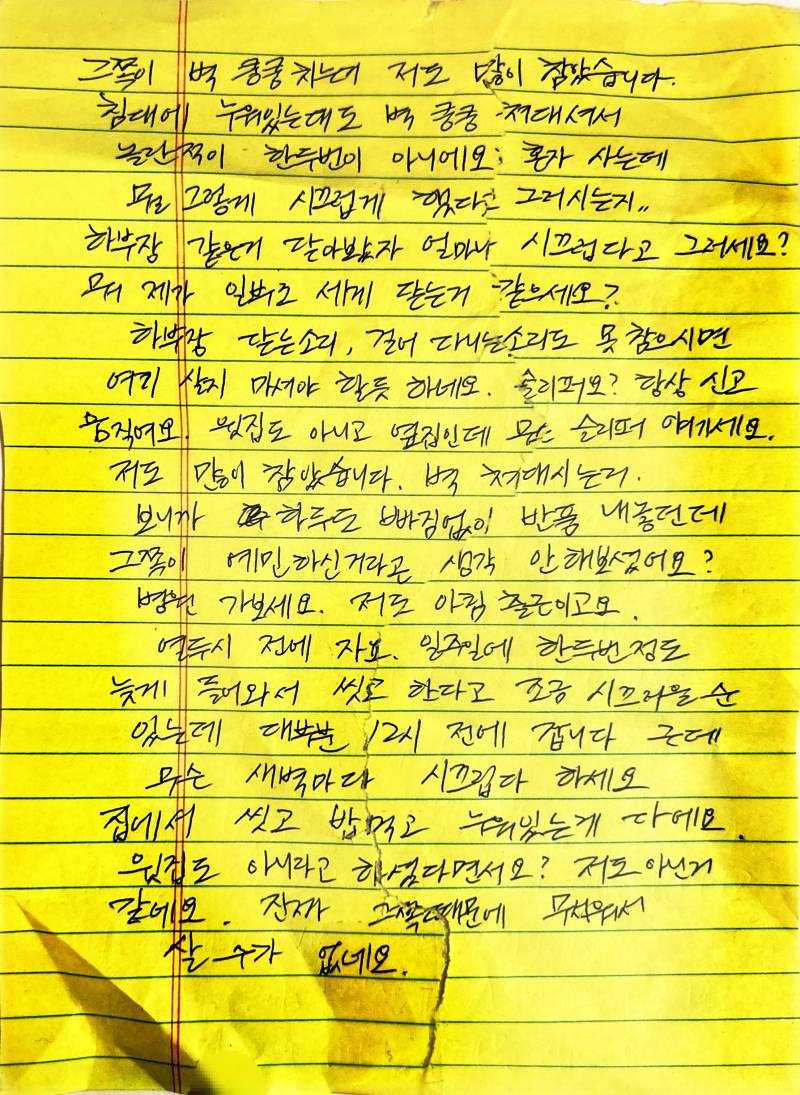 그쪽이 벽 쿵쿵치는데 저도 많이 참았습니다.
침대에 누워있는데도 벽 쿵쿵 쳐대셔서
놀란적이 한두번이 아니에요. 혼자 사는데
뭐를 그렇게 시끄럽게 했다고 그러시는지..
하부장 같은거 닫아봤자 얼마나 시끄럽다고 그러세요?
뭐 제가 일부러 세게 닫는거 같으세요?
하부장 닫는소리, 걸어 다니는소리도 못 참으시면
여기 살지 마셔야 할듯 하네요. 슬리퍼요? 항상 신고
움직여요. 윗집도 아니고 옆집인데 무슨 슬리퍼 얘기세요.
저도 많이 참았습니다. 벽 쳐대시는거.
보니까 하루도 빠짐없이 반품 내놓던데
그쪽이 예민하신거라곤 생각 안해보셨어요?
병원 가보세요. 저도 아침 출근이고요.
열두시 전에 자요. 일주일에 한두번정도
늦게 들어와서 씻고 한다고 조금 시끄러울순
있는데 대부분 12시 전에 잡니다 근데
무슨 새벽마다 시끄럽다 하세요
집에서 씻고 밥먹고 누워있는게 다에요.
윗집도 아니라고 하셨다면서요? 저도아닌거
같네요. 진짜 그쪽때문에 무서워서
살 수가 없네요.